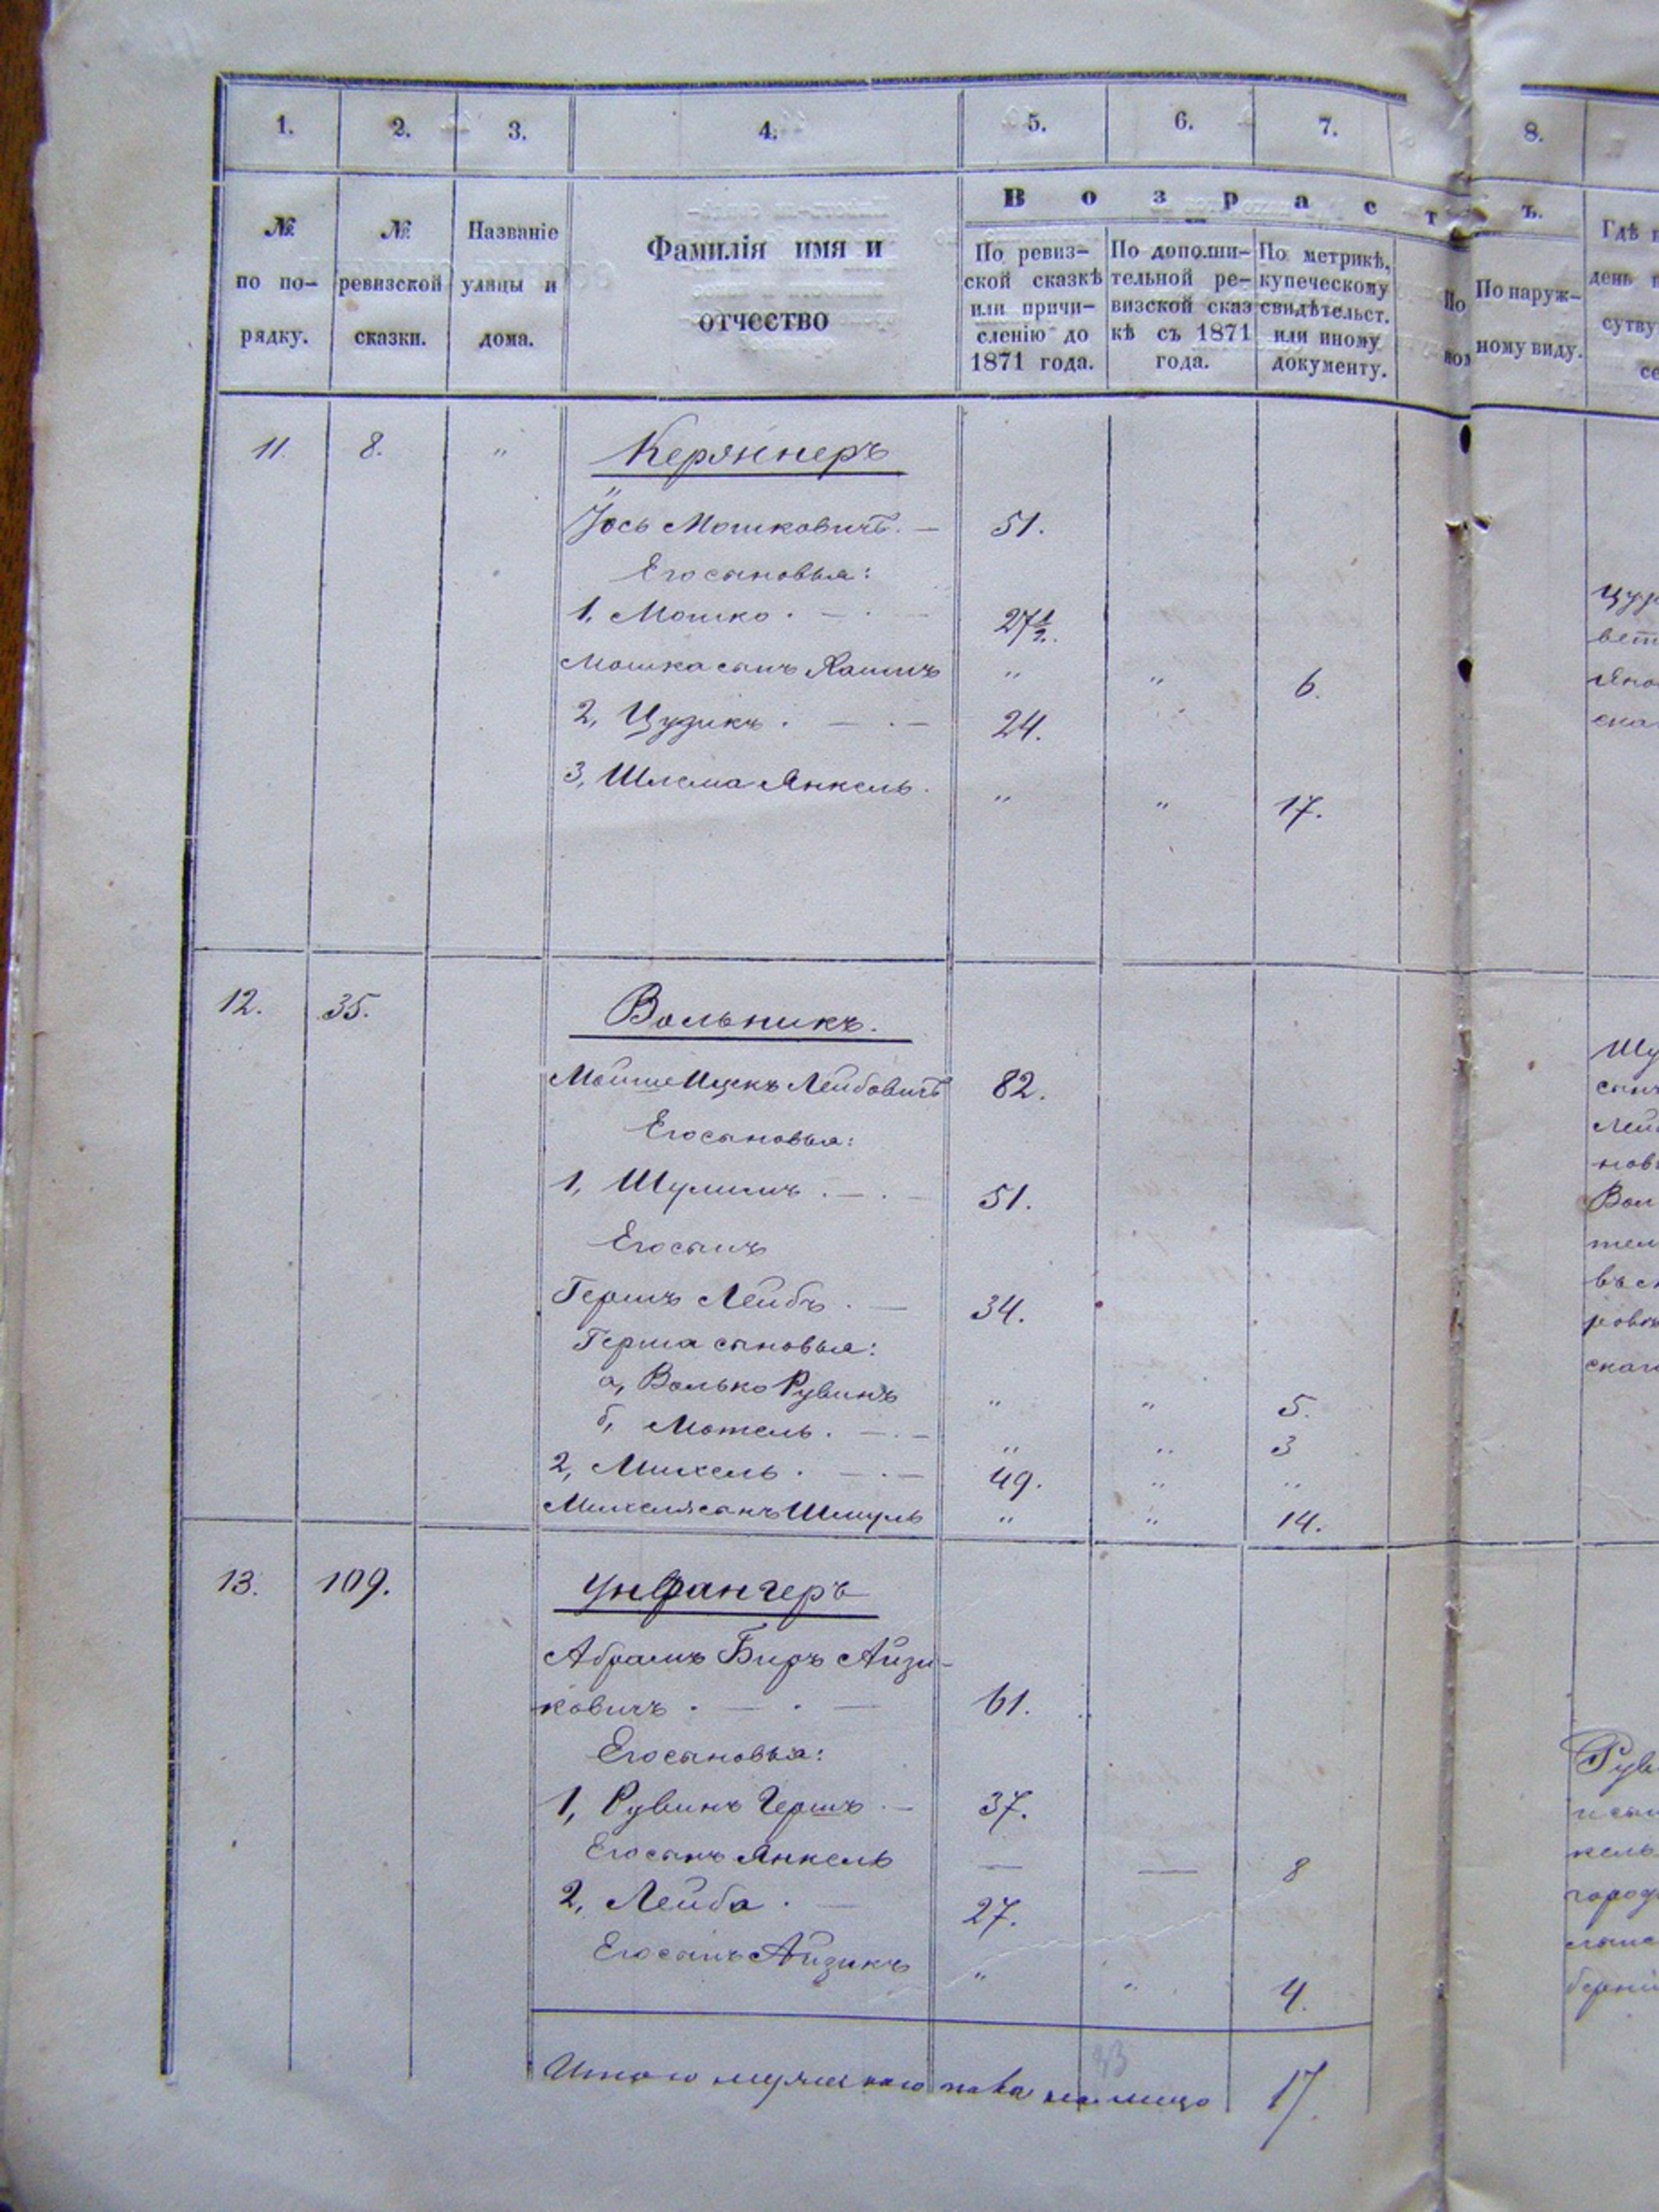 1. 2. 3. 4. 5. 6. 7. 8.
В о з р а с т ъ.
№ по по-рядку.
№ ревизской сказки.
Названіе улицы и дома.
Фамилія имя и отчество
По ревиз-ской сказкѣ или причи-сленію до 1871 года.
По дополни-тельной ре-визской сказкѣ съ 1871 года.
По метрикѣ, купеческому свидѣтельст. или иному документу.
По
По наруж-ному виду.
Гдѣ
день
сутву
11. 8. " Керзннеръ
Іось Мошковичъ. — 51.
Его сыновья:
1, Мошко. — . 27 1/2.
Мошка сынъ Хаимъ " " 6.
2, Цудикъ . — . — 24.
3, Шлема Янкель. " " 17.
12. 35. Вольникъ.
Мойше Ицекъ Лейбовичъ 82.
Его сыновья:
1, Шулимъ . — . — 51.
Его сынъ
Гершъ Лейбъ . — 34.
Герша сыновья:
а, Волько Рувинъ " " 5.
б, Мотель . — . — " " 3
2, Михель . — . — 49. " "
Михеля сынъ Шмуль " " 14.
13. 109. Унфангеръ
Абрамъ Беръ Айзи-
ковичъ . — . — 61.
Его сыновья:
1, Рувинъ Гершъ . — 37.
Его сынъ Янкель — — 8
2, Лейба . — 27.
Его сынъ Айзикъ " " 4.
Итого мужескаго пола на лицо 17.